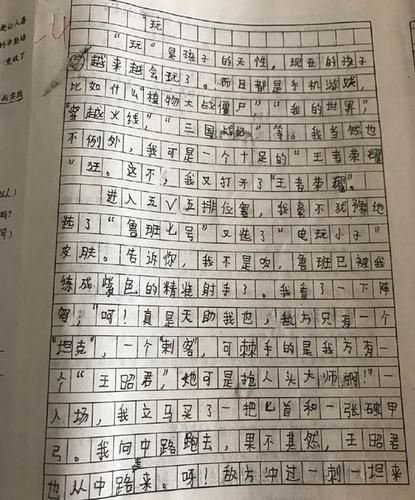 更让人喜
“玩”
“玩”是孩子的天性，现在的孩子
越来越会玩了。而且都是手机游戏，
比如什么“植物大战僵尸”“我的世界”
“穿越火线”，“三国”等。我当然也
不例外，我可是一个十足的“王者荣耀
”狂。这不，我又打开了“王者荣耀”。
进入五V五排位赛，我毫不犹豫地
选了“鲁班七号”又选了“电玩小子”
皮肤。告诉你，我不是吹，鲁班已被我
练成紫色的精准射手了。我看了一下阵
容，“呵！真是天助我也，敌方只有一个
“坦克”，一个“刺客”，可棘手的是我方有一
个“王昭君”，她可是抢人头大师啊！”一
入场，我立马买了一把匕首和一张破甲
弓。我向中路跑去，果不其然，王昭君
也从中路来。呀！敌方冲过一刺一坦来